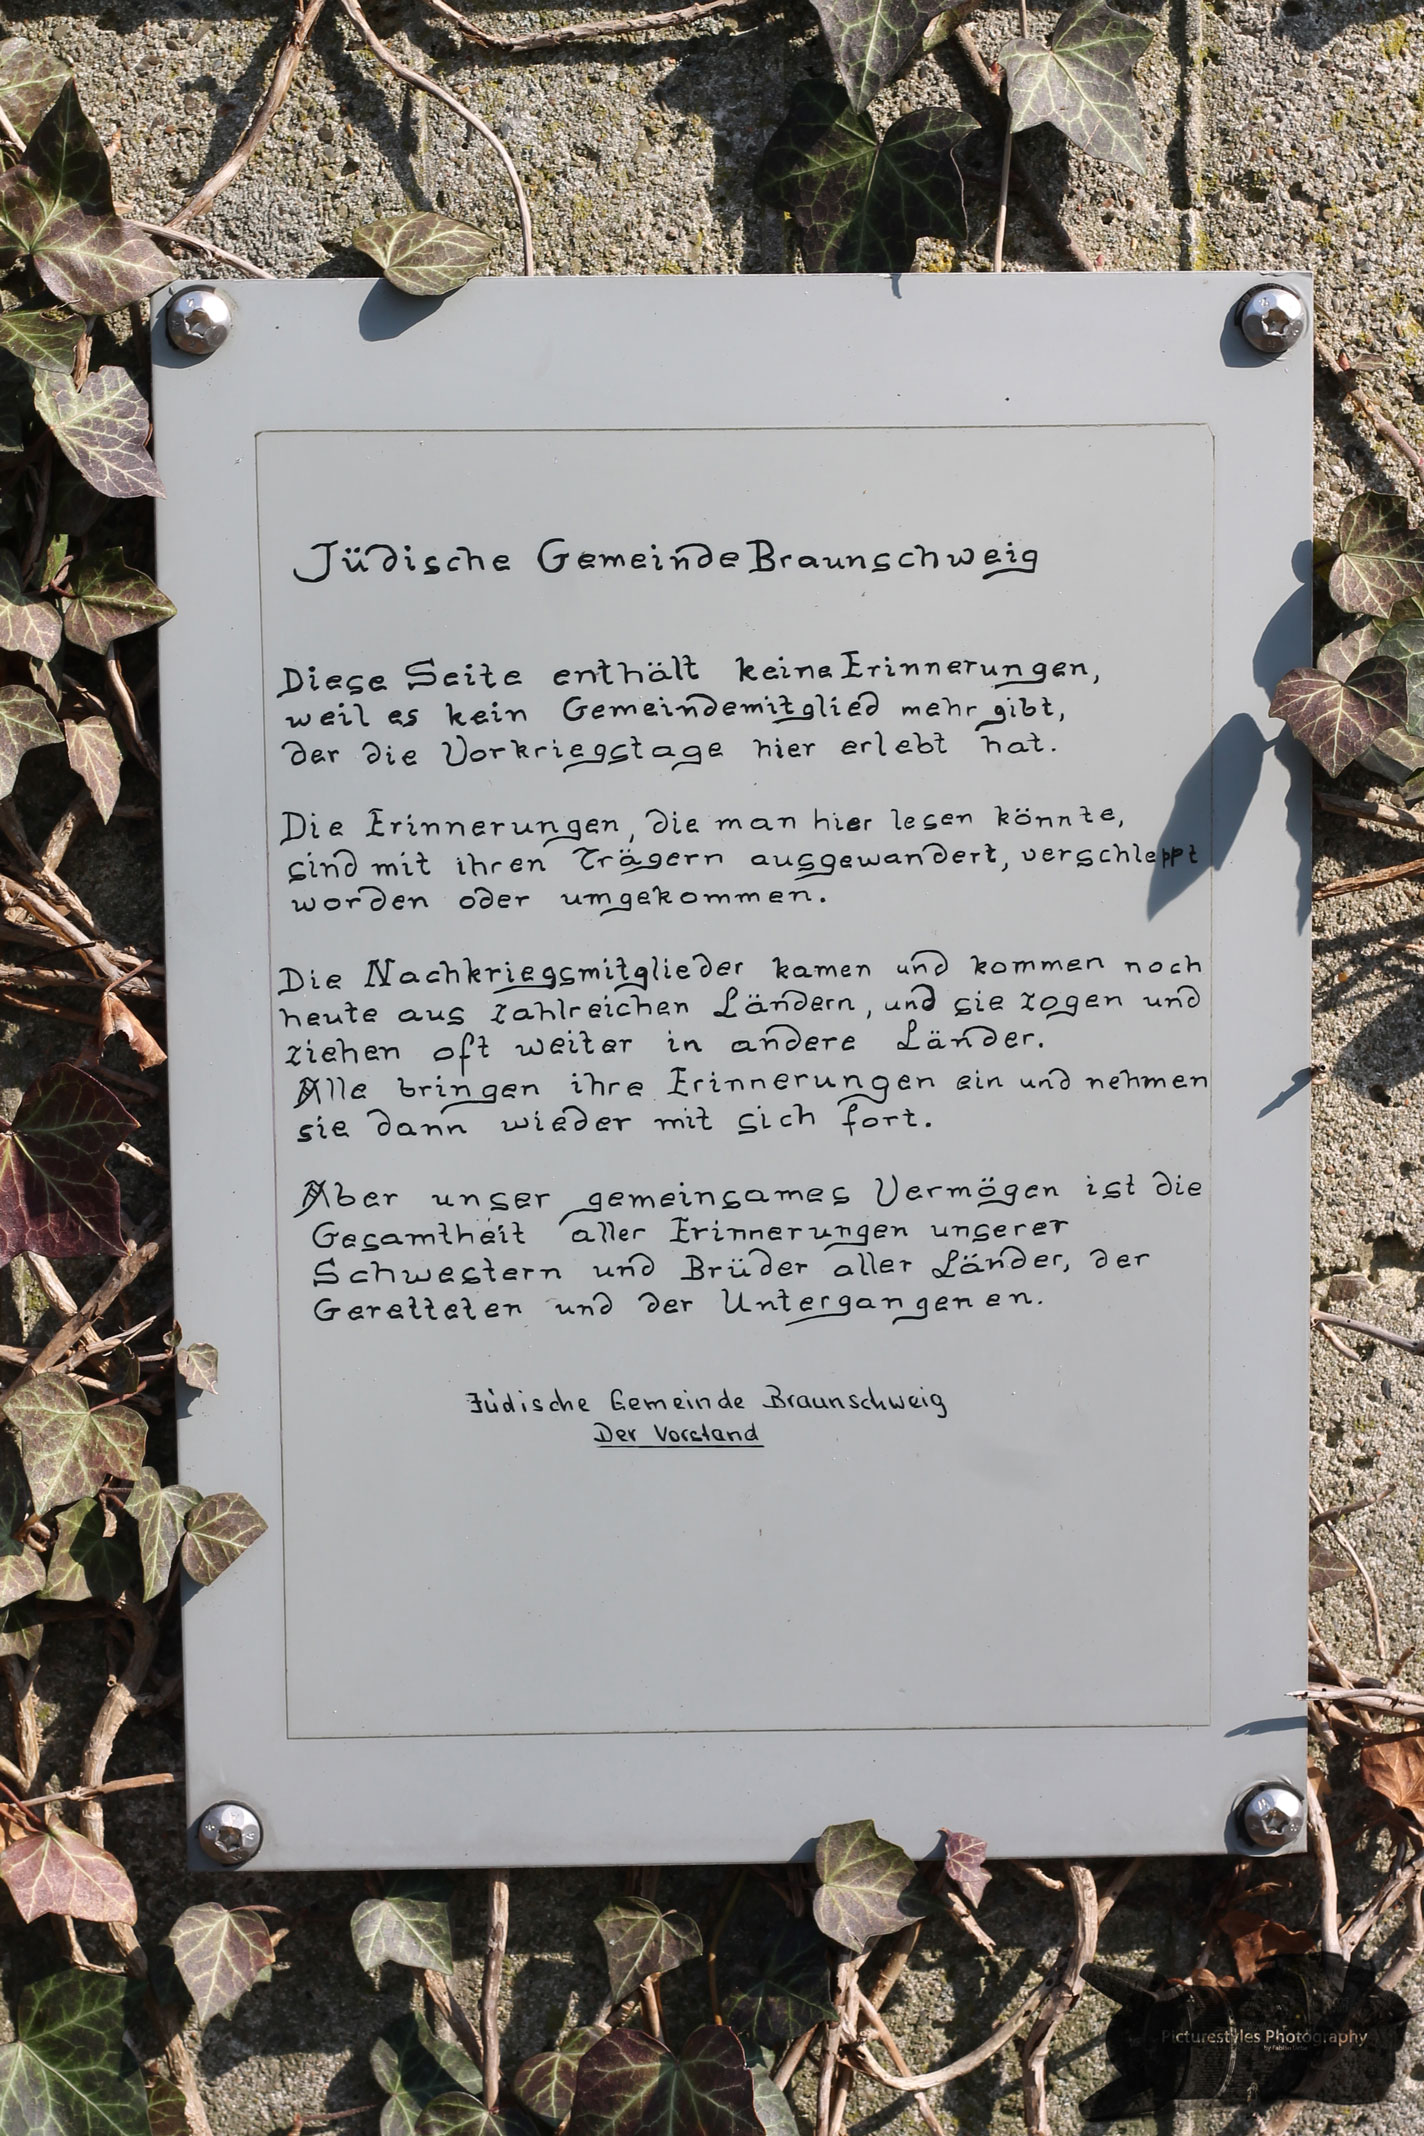 Jüdische Gemeinde Braunschweig
Diese Seite enthält keine Erinnerungen,
weil es kein Gemeindemitglied mehr gibt,
der die Vorkriegstage hier erlebt hat.
Die Erinnerungen, die man hier lesen könnte,
sind mit ihren Trägern ausgewandert, verschleppt
worden oder umgekommen.
Die Nachkriegsmitglieder kamen und kommen noch
heute aus zahlreichen Ländern, und sie zogen und
ziehen oft weiter in andere Länder.
Alle bringen ihre Erinnerungen ein und nehmen
sie dann wieder mit sich fort.
Aber unser gemeinsames Vermögen ist die
Gesamtheit aller Erinnerungen unserer
Schwestern und Brüder aller Länder, der
Geretteten und der Untergangenen.
Jüdische Gemeinde Braunschweig
Der Vorstand
Picturestyles Photography